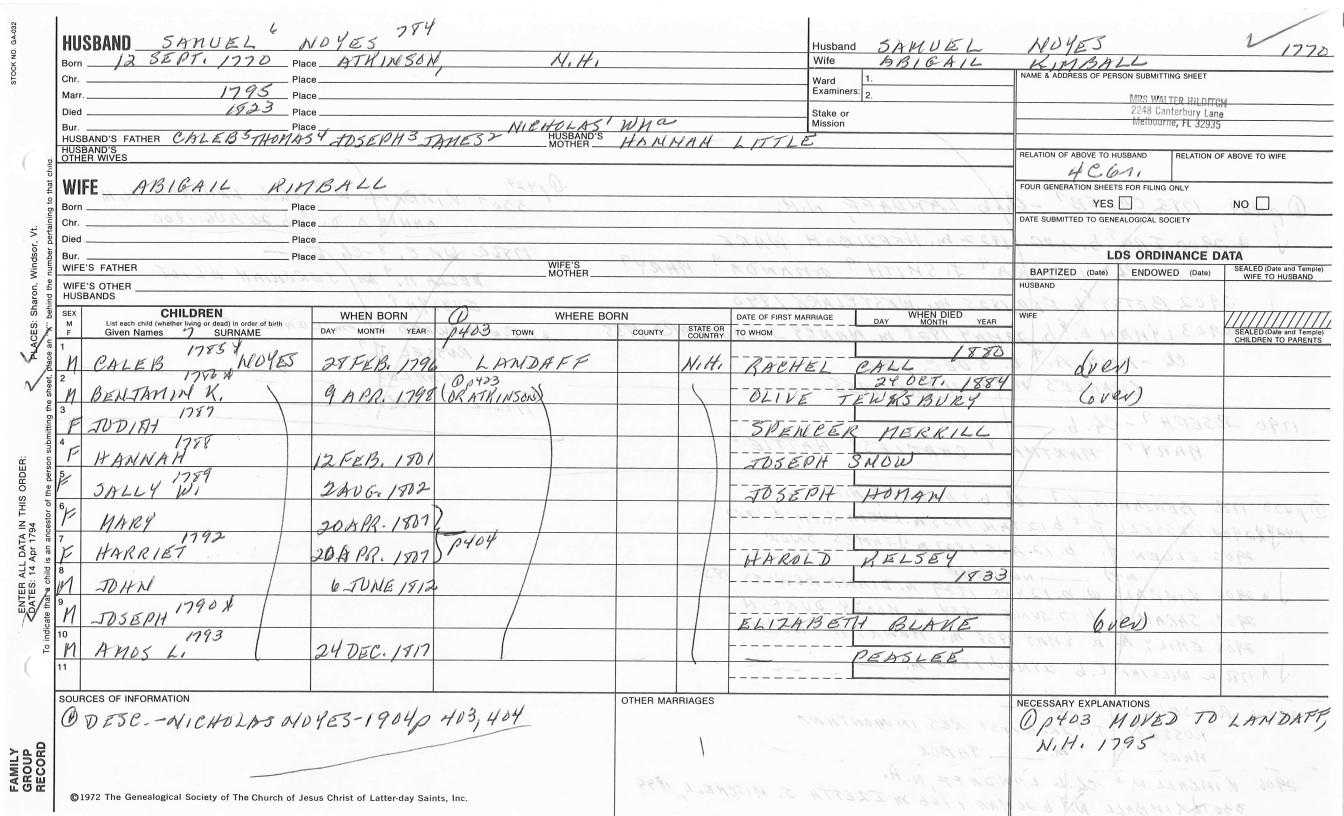 STOCK NO. GA-032
HUSBAND SAMUEL 6 NOYES 784
Born 12 SEPT. 1770 Place ATKINSON, N.H.
Chr. Place
Marr. 1795 Place
Died 1823 Place
Bur. Place NICHOLAS' WMa
HUSBAND'S FATHER CALEB5 THOMAS4 JOSEPH3 JAMES2 HUSBAND'S MOTHER HANNAH LITTLE
HUSBAND'S OTHER WIVES
WIFE ABIGAIL KIMBALL
Born Place
Chr. Place
Died Place
Bur. Place
WIFE'S FATHER WIFE'S MOTHER
WIFE'S OTHER HUSBANDS
Husband SAMUEL NOYES 1770
Wife ABIGAIL KIMBALL
Ward Examiners: 1.
2.
Stake or Mission
NAME & ADDRESS OF PERSON SUBMITTING SHEET
MRS WALTER HILDITCH
2248 Canterbury Lane
Melbourne, FL 32935
RELATION OF ABOVE TO HUSBAND RELATION OF ABOVE TO WIFE
FOUR GENERATION SHEETS FOR FILING ONLY
YES NO
DATE SUBMITTED TO GENEALOGICAL SOCIETY
LDS ORDINANCE DATA
BAPTIZED (Date) ENDOWED (Date) SEALED (Date and Temple) WIFE TO HUSBAND
HUSBAND
WIFE
SEALED (Date and Temple) CHILDREN TO PARENTS
SEX M F CHILDREN
List each child (whether living or dead) in order of birth
Given Names 7 SURNAME
WHEN BORN DAY MONTH YEAR
① p403
WHERE BORN TOWN COUNTY STATE OR COUNTRY
DATE OF FIRST MARRIAGE TO WHOM
WHEN DIED DAY MONTH YEAR
1 M CALEB 1785X NOYES 28 FEB. 1796 LANDAFF N.H. RACHEL CALL 1880 (over)
2 M BENJAMIN K. 1786X 9 APR. 1798 ① p423 (OR ATKINSON) OLIVE TEWKSBURY 24 OCT. 1884 (over)
3 F JUDITH 1787 SPENCER MERRILL
4 F HANNAH 1788 12 FEB. 1801 JOSEPH SNOW
5 F SALLY W. 1789 2 AUG. 1802 JOSEPH HOMAN
6 F MARY 20 APR. 1807
7 F HARRIET 1792 20 APR. 1807 p404 HAROLD KELSEY
8 M JOHN 6 JUNE 1812 1833
9 M JOSEPH 1790X ELIZABETH BLAKE (over)
10 M AMOS L. 1793 24 DEC. 1817 — PEASLEE
11
SOURCES OF INFORMATION
① DESC.-NICHOLAS NOYES-1904p 403, 404
OTHER MARRIAGES
NECESSARY EXPLANATIONS
① p403 MOVED TO LANDAFF,
N.H. 1795
©1972 The Genealogical Society of The Church of Jesus Christ of Latter-day Saints, Inc.
FAMILY
GROUP
RECORD
ENTER ALL DATA IN THIS ORDER:
DATES: 14 Apr 1794
PLACES: Sharon, Windsor, Vt.
To indicate that a child is an ancestor of the person submitting the sheet, place an "X" behind the number pertaining to that child.